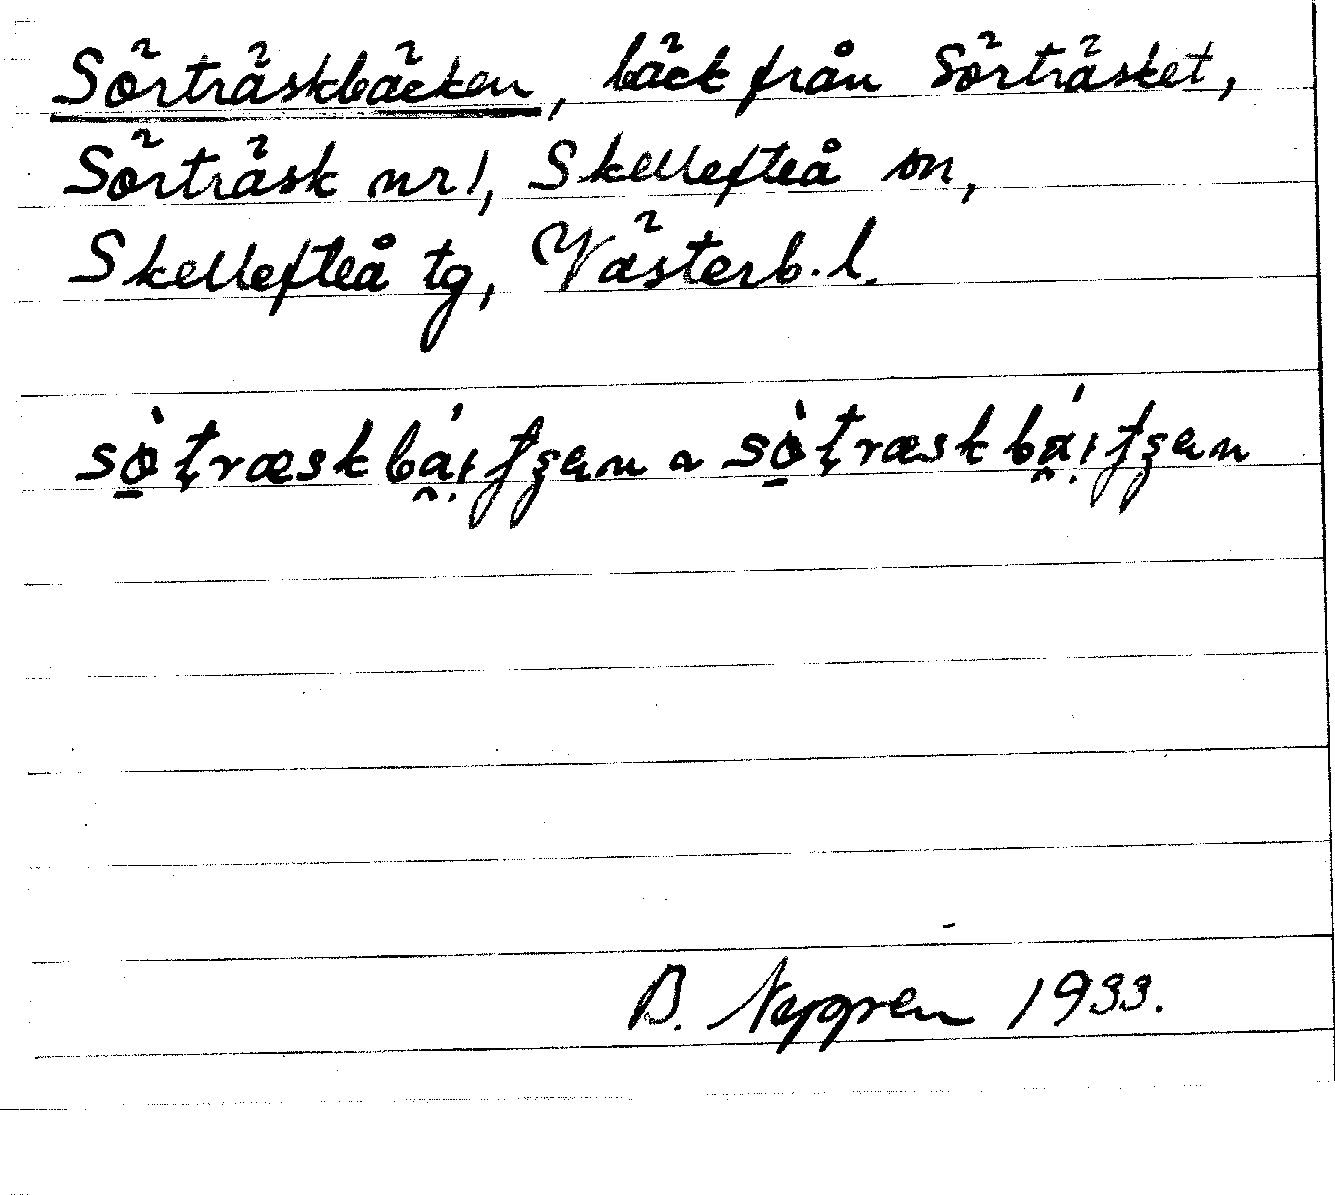 Sörträskbäcken, bäck från Sörträsket,
Sörträsk nr 1, Skellefteå sn,
Skellefteå tg, Västerb. l.
B. 1933.